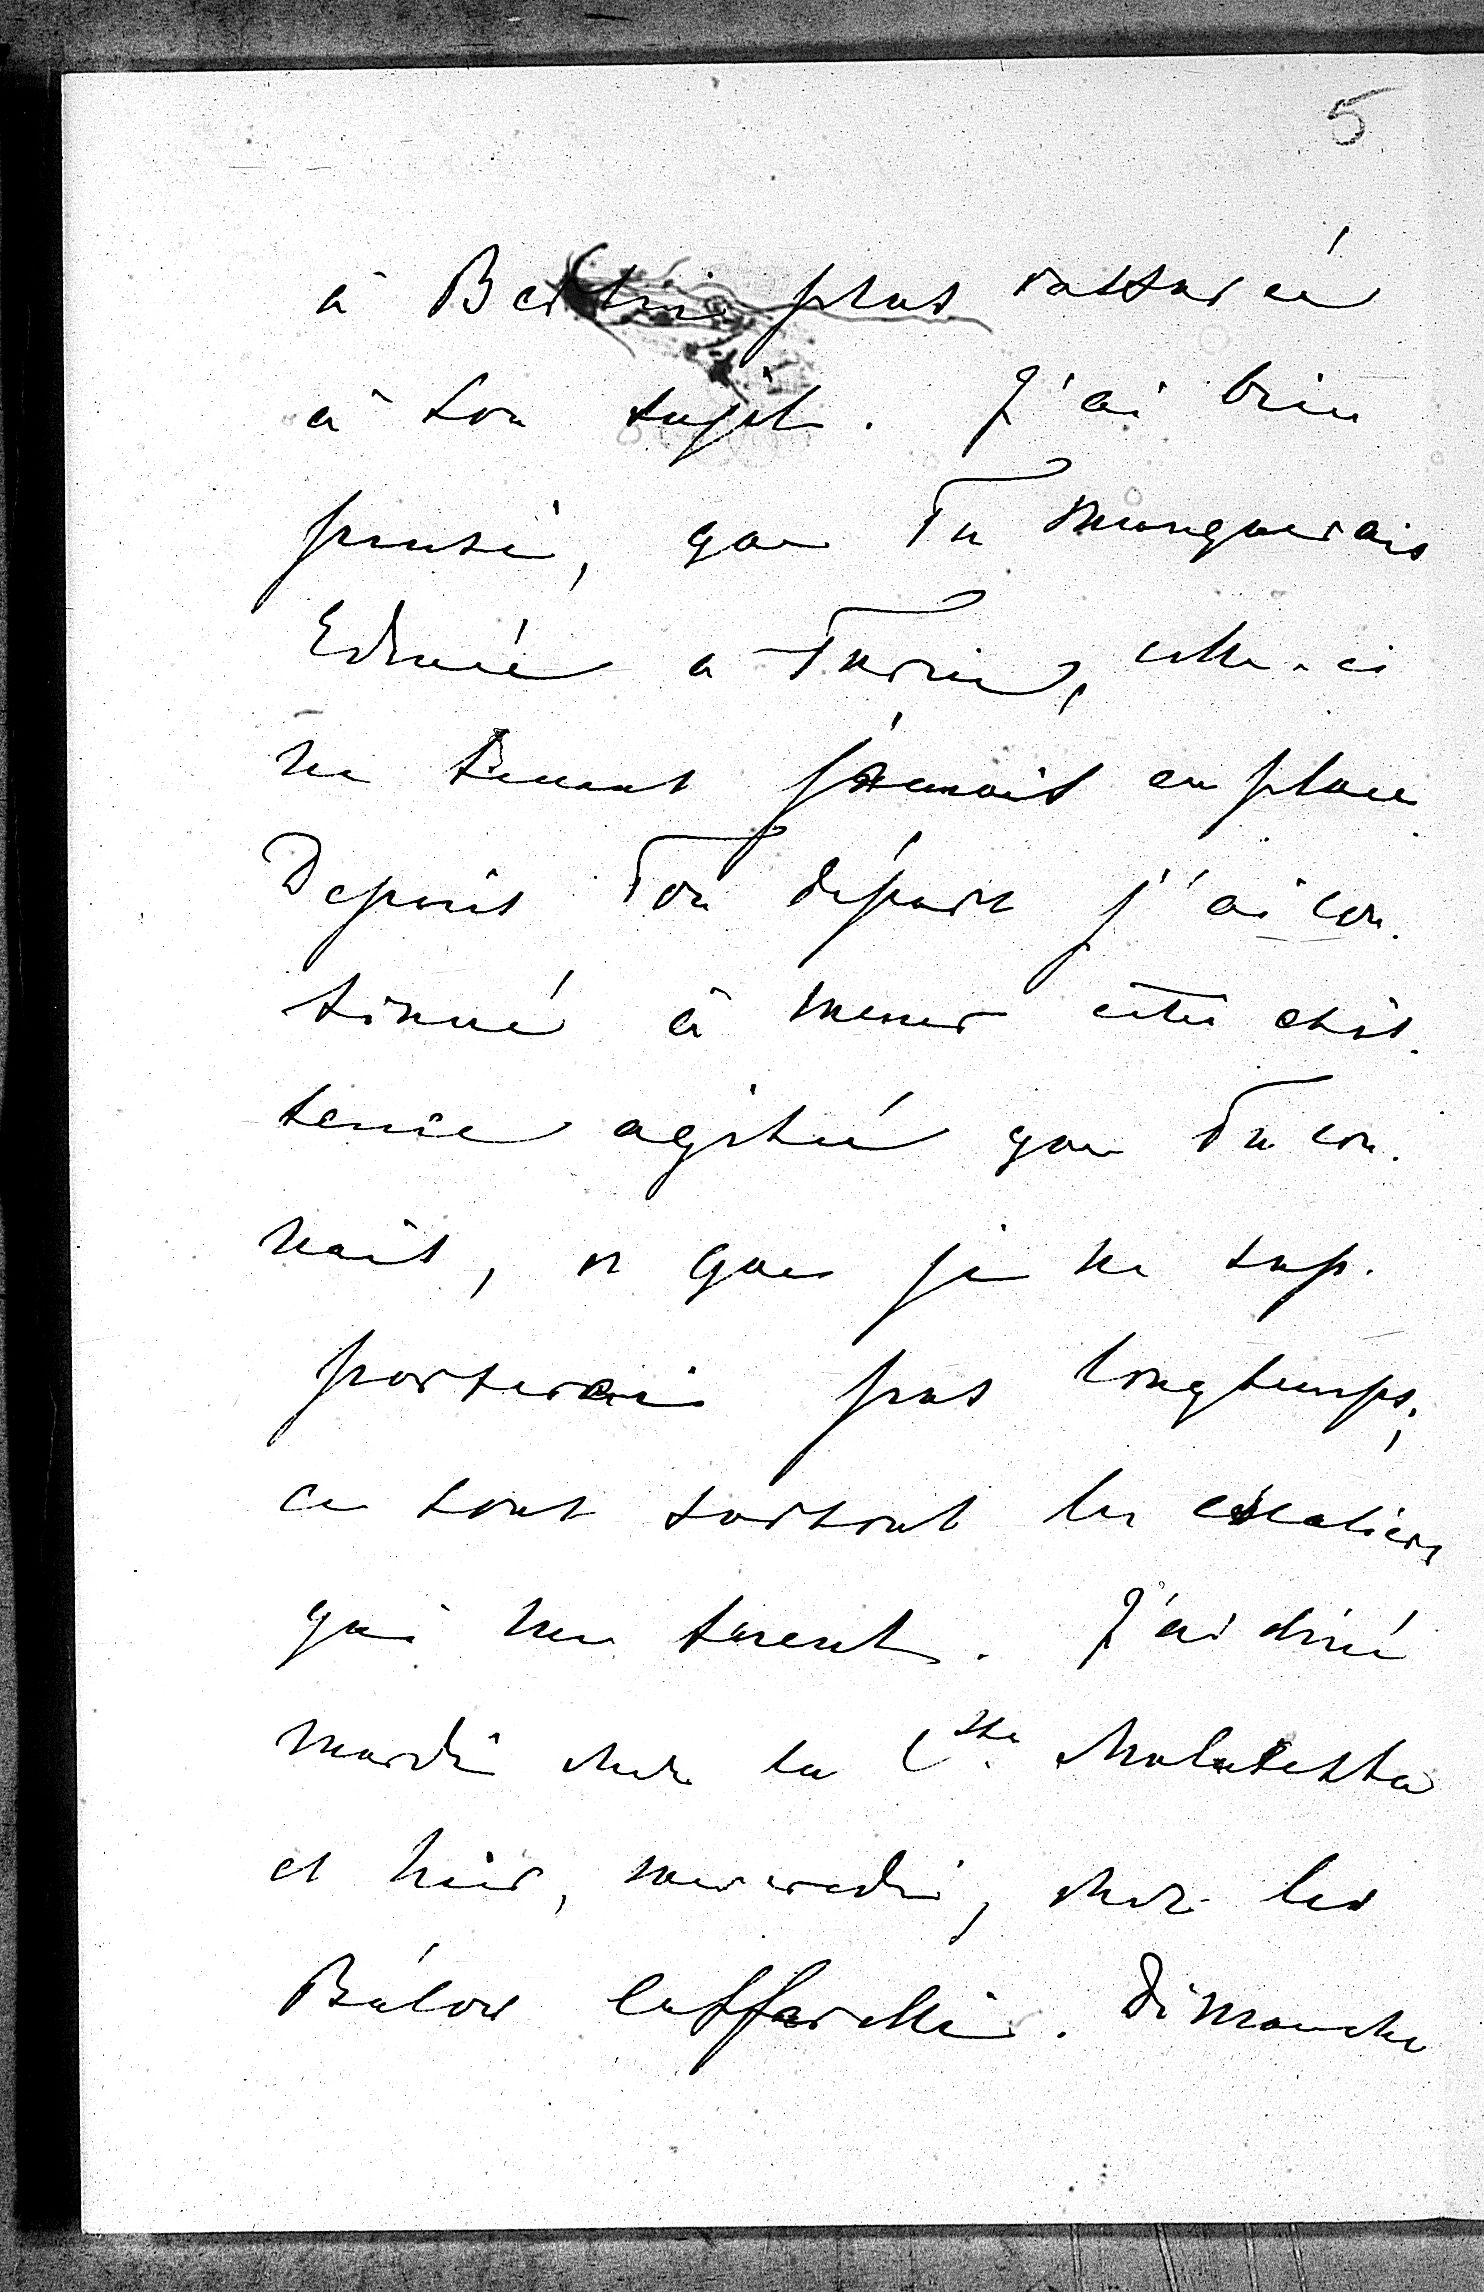 5
à Berlin plus rassurée
à son sujet. J'ai bien
pensé, que Tu manquerais
Edmée a Turin, celle-ci
ne tenant jamais en place
Depuis Ton départ j'ai con.
tinué à mener cette exis.
tence agitée que Tu con.
nais, et que je ne sup.
porterai pas longtemps;
ce sont surtout les escaliers
qui me tuent. J'ai diné
mardi chez la Ctsse Malatesta
et hier, mercredi, chez les
Bülow Caffarelli. Dimanche